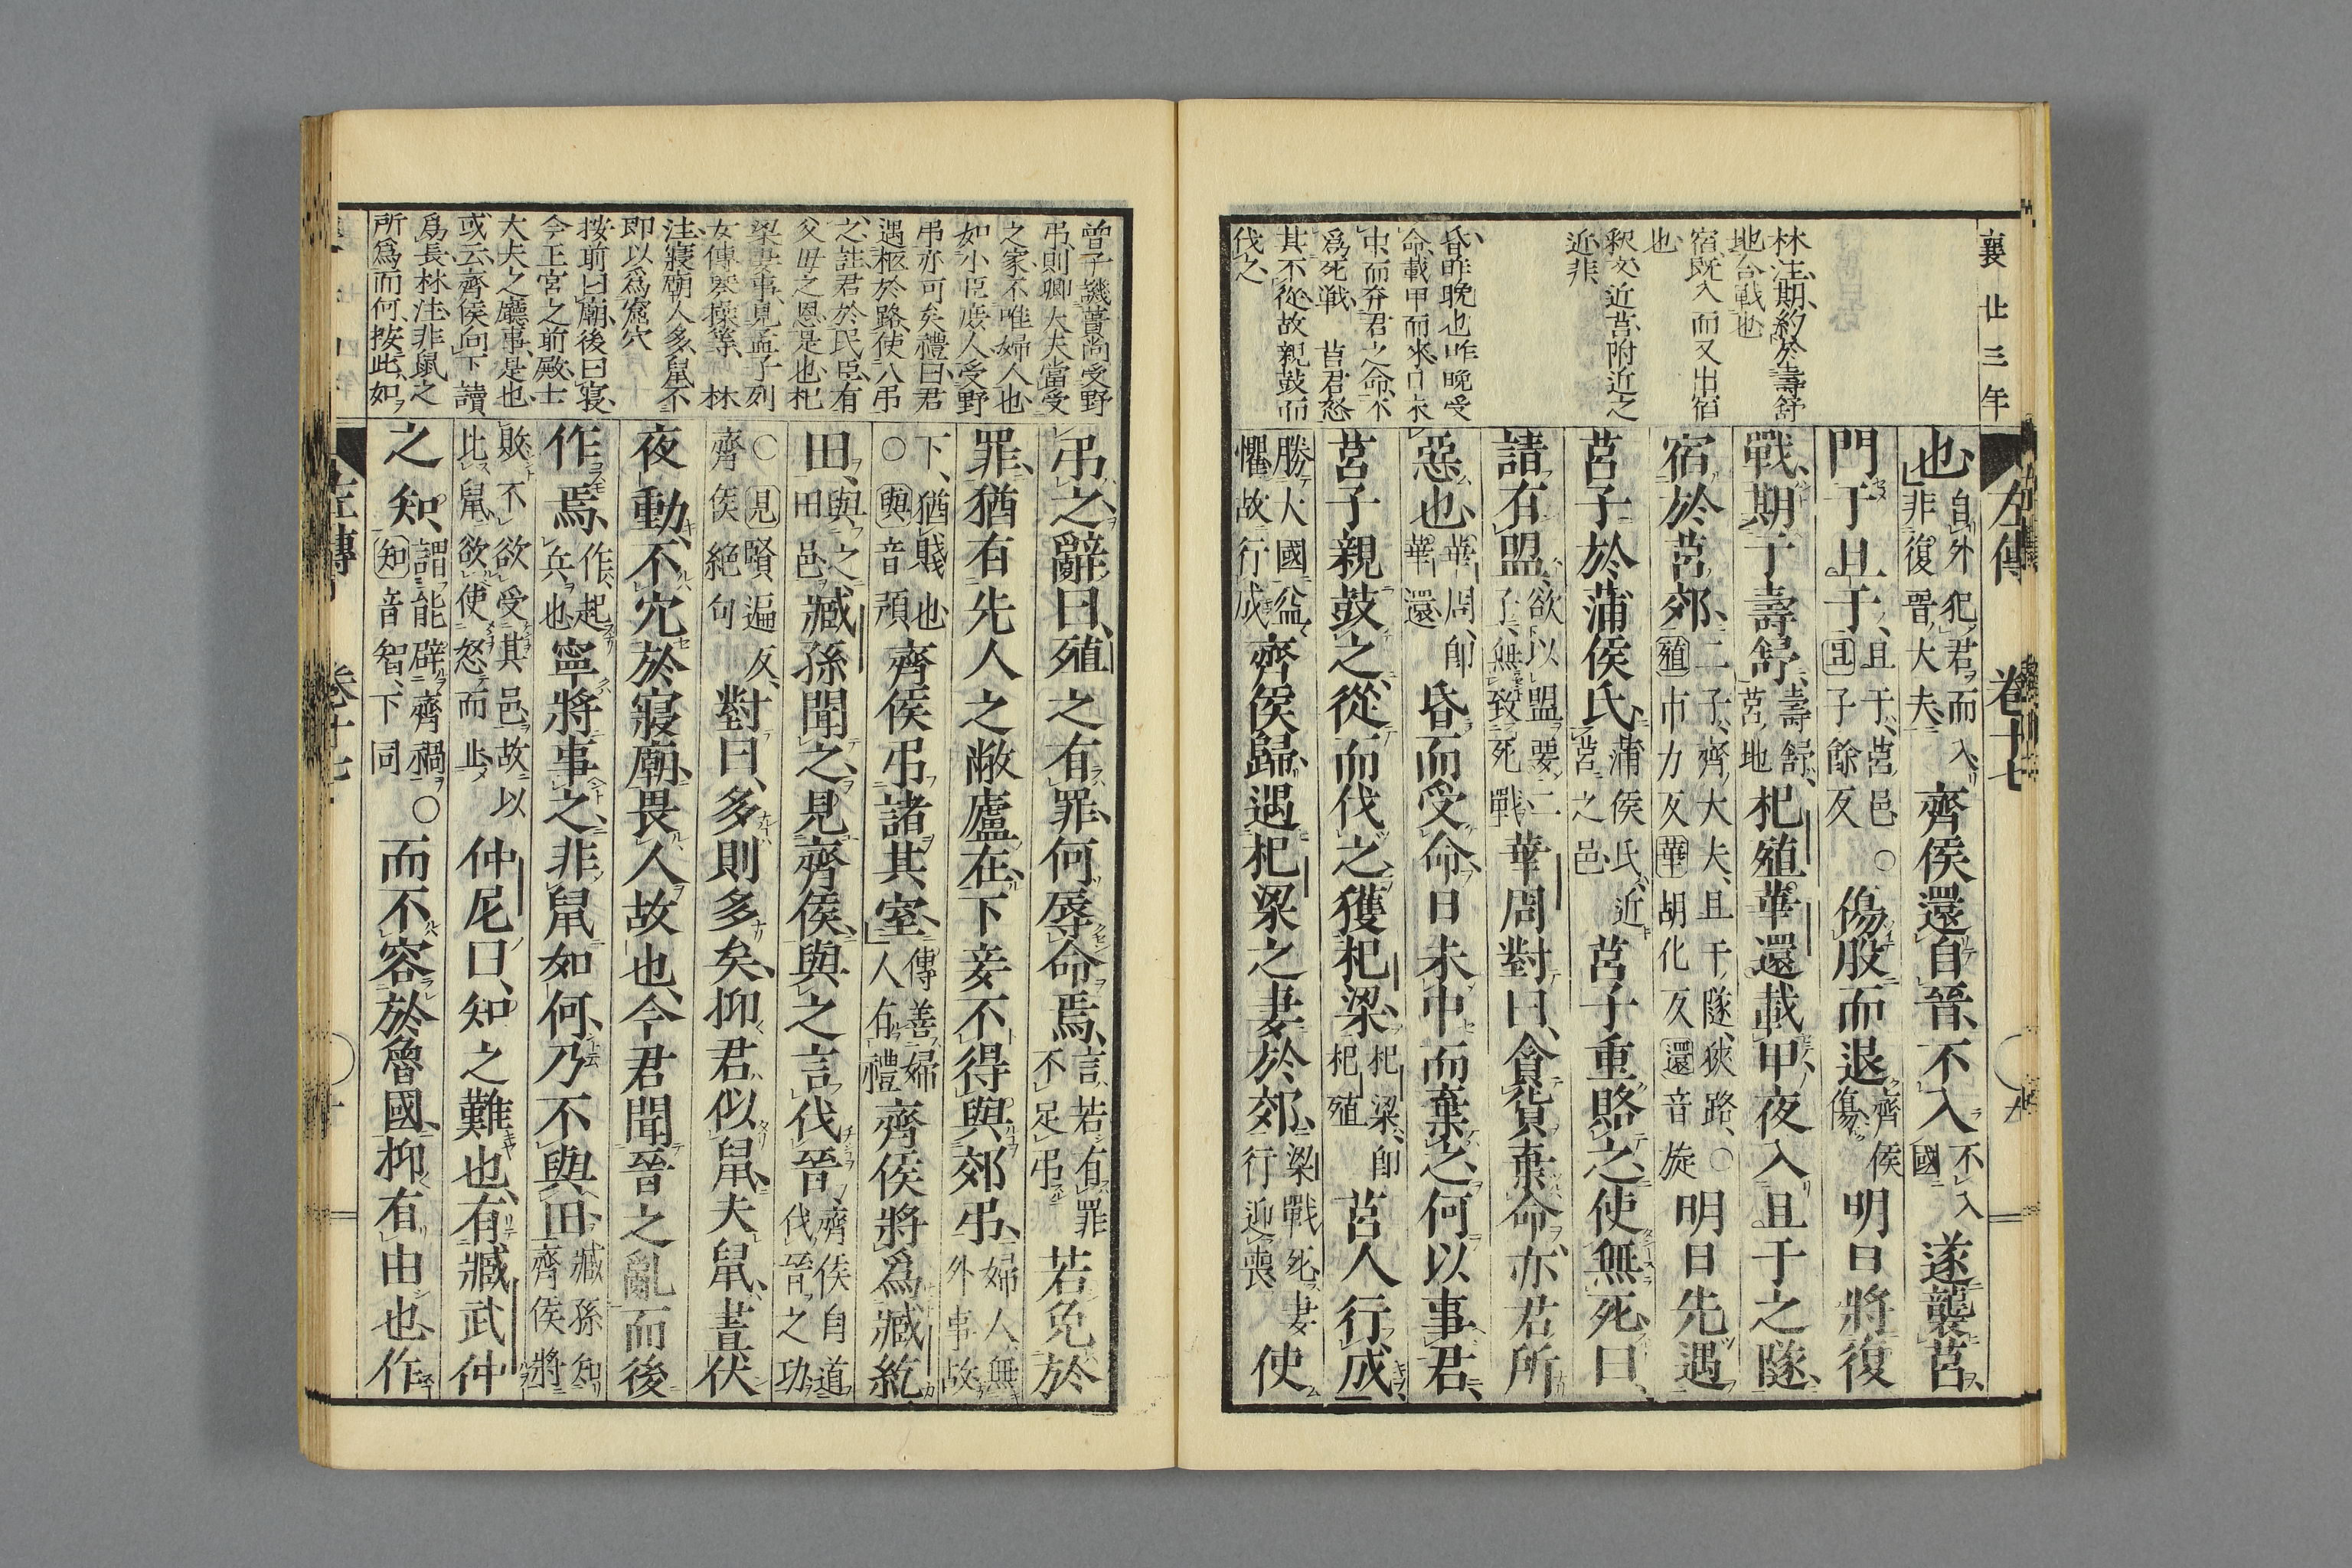 襄廿三年
左傳 卷十七
林注、期、約於壽舒
地合戰也
宿既入而又出宿
也
釈文、近莒、附近之
近、非
昏、昨晚也、昨晚受
命、載甲而來、日未
中而弃君之命、不
爲死戦 莒君怒
其不從、故親鼓而
伐之、
也、自外犯君而入、非復晋大夫、齊侯還自晉、不入、不入國遂襲莒、
門于且于、且于、莒邑、〇且子餘反傷股而退、齊侯傷明日將復
戰、期于壽舒、壽舒、莒地杞殖華還載甲夜入且于之隧、
宿於莒郊、二子、齊大夫、且于隧、狹路、〇殖市力反華胡化反還音旋明日先遇
莒子於蒲侯氏、蒲侯氏、近莒之邑莒子重賂之、使無死、曰、
請有盟、欲以盟要二子、無致死戰華周對曰、貪貨棄命、亦君所
惡也、華周、即華還昏而受命、日未中而棄之、何以事君、
莒子親鼓之、從而伐之、獲杞梁、杞梁、即杞殖莒人行成、
勝大國益懼、故行成齊侯歸、遇杞梁之妻於郊、梁戰死、妻行迎喪使
曽子譏蕢尚受野
弔、則卿大夫當受
之家、不唯婦人也、
如小臣庶人、受野
弔亦可矣、禮曰、君
遇柩於路、使人弔
之、註、君於民臣、有
父毋之恩是也、杞
梁妻事、見孟子列
女傳琴操等、 林
注、寢廟人多、鼠不
即以爲窟穴
按前曰廟、後曰寢、
今王宮之前殿、士
大夫之廳事、是也、
或云、齊侯向下讀
爲長、林注、非鼠之
所爲而何、按此、如
弔之、辭曰、殖之有罪、何辱命焉、言若有罪、不足弔若免於
罪、猶有先人之敝廬在、下妾不得與郊弔、婦人無外事、故
下、猶賤也〇與音頏齊侯弔諸其室、傳善婦人有禮齊侯將爲臧紇
田、與之田邑、臧孫聞之、見齊侯、與之言伐晉、齊侯自道伐晉之功
〇見賢遍反、齊侯絶句對曰、多則多矣、抑君似鼠、夫鼠、晝伏
夜動、不穴於寢廟、畏人故也、今君聞晉之亂而後
作焉、作、起兵也、寧將事之、非鼠如何、乃不與田、臧孫知齊侯將
敗、不欲受其邑、故以比鼠、欲使怒而止仲尼曰、知之難也、有臧武仲
之知、謂能辟齊禍、〇知音智、下同而不容於魯國、抑有由也、作
左傳 卷十七